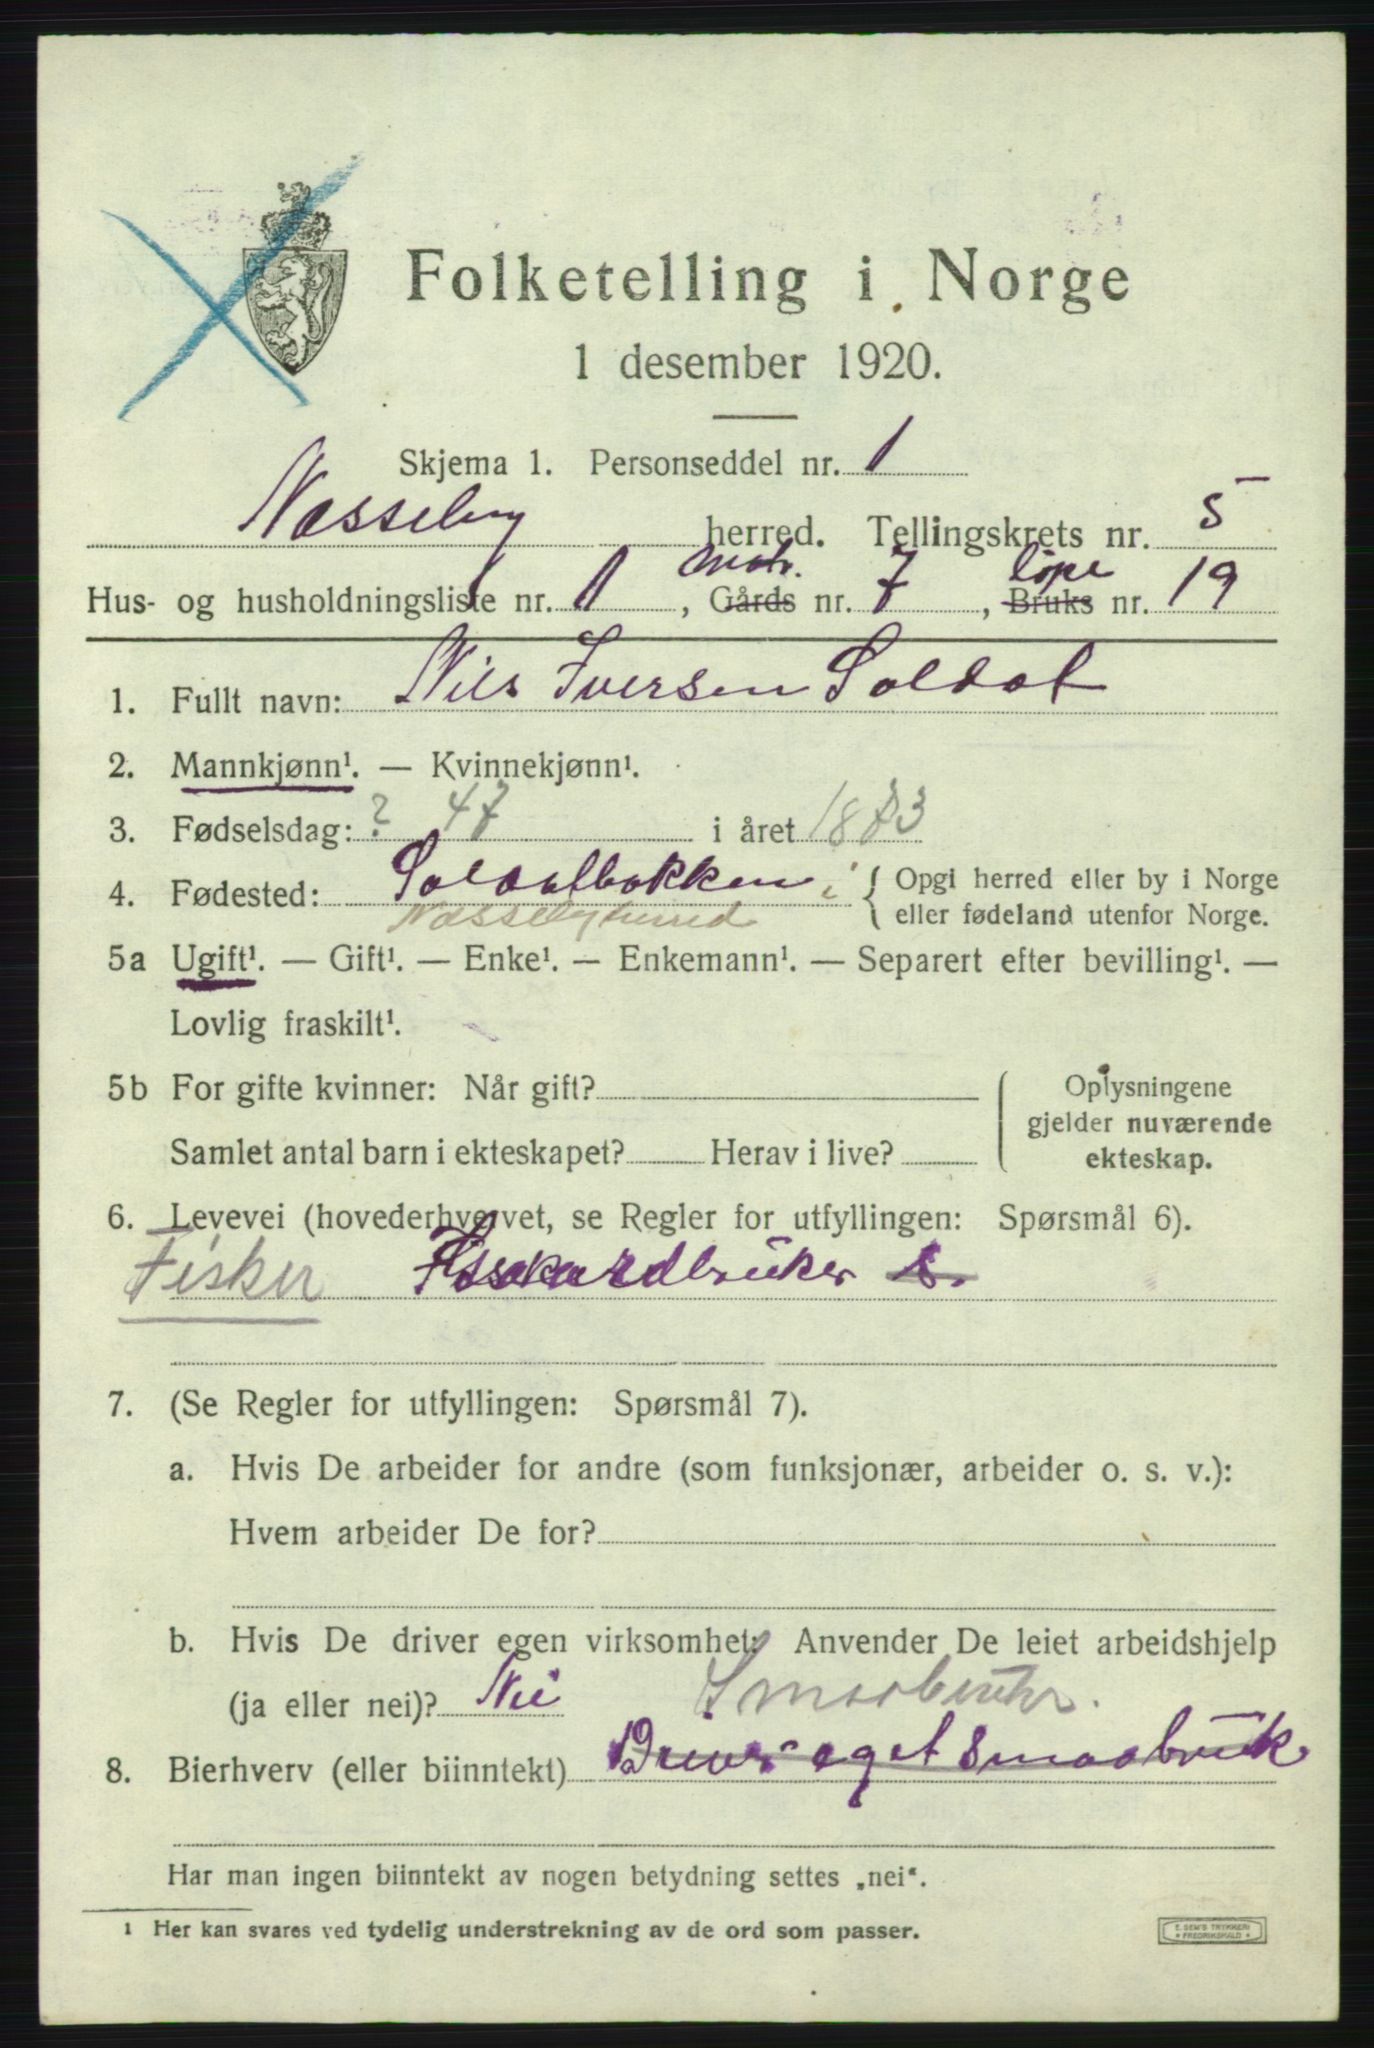 Folketelling i Norge
1 desember 1920.
Skjema 1. Personseddel nr. 1
Nesseby herred. Tellingskrets nr. 5
matr. løpe
Hus- og husholdningsliste nr. 1, Gårds nr. 7, Bruks nr. 19
1. Fullt navn: Nils Iversen Soldat
2. Mannkjønn¹. — Kvinnekjønn¹.
3. Fødselsdag: ? 47 i året 1873
4. Fødested: Soldatbakken i { Opgi herred eller by i Norge
Nesseby herred eller fødeland utenfor Norge.
5a Ugift¹. — Gift¹. — Enke¹. — Enkemann¹. — Separert efter bevilling¹. —
Lovlig fraskilt¹.
5b For gifte kvinner: Når gift? Oplysningene
gjelder nuværende
Samlet antal barn i ekteskapet? Herav i live? ekteskap.
6. Levevei (hovederhvervet, se Regler for utfyllingen: Spørsmål 6).
Fisker
7. (Se Regler for utfyllingen: Spørsmål 7).
a. Hvis De arbeider for andre (som funksjonær, arbeider o. s. v.):
Hvem arbeider De for?
b. Hvis De driver egen virksomhet: Anvender De leiet arbeidshjelp
(ja eller nei)? Nei Smaabruker.
8. Bierhverv (eller biinntekt) Driver eget Smaabruk
Har man ingen biinntekt av nogen betydning settes „nei“.
¹ Her kan svares ved tydelig understrekning av de ord som passer.
E. SEM'S TRYKKERI
* FREDRIKSHALD *